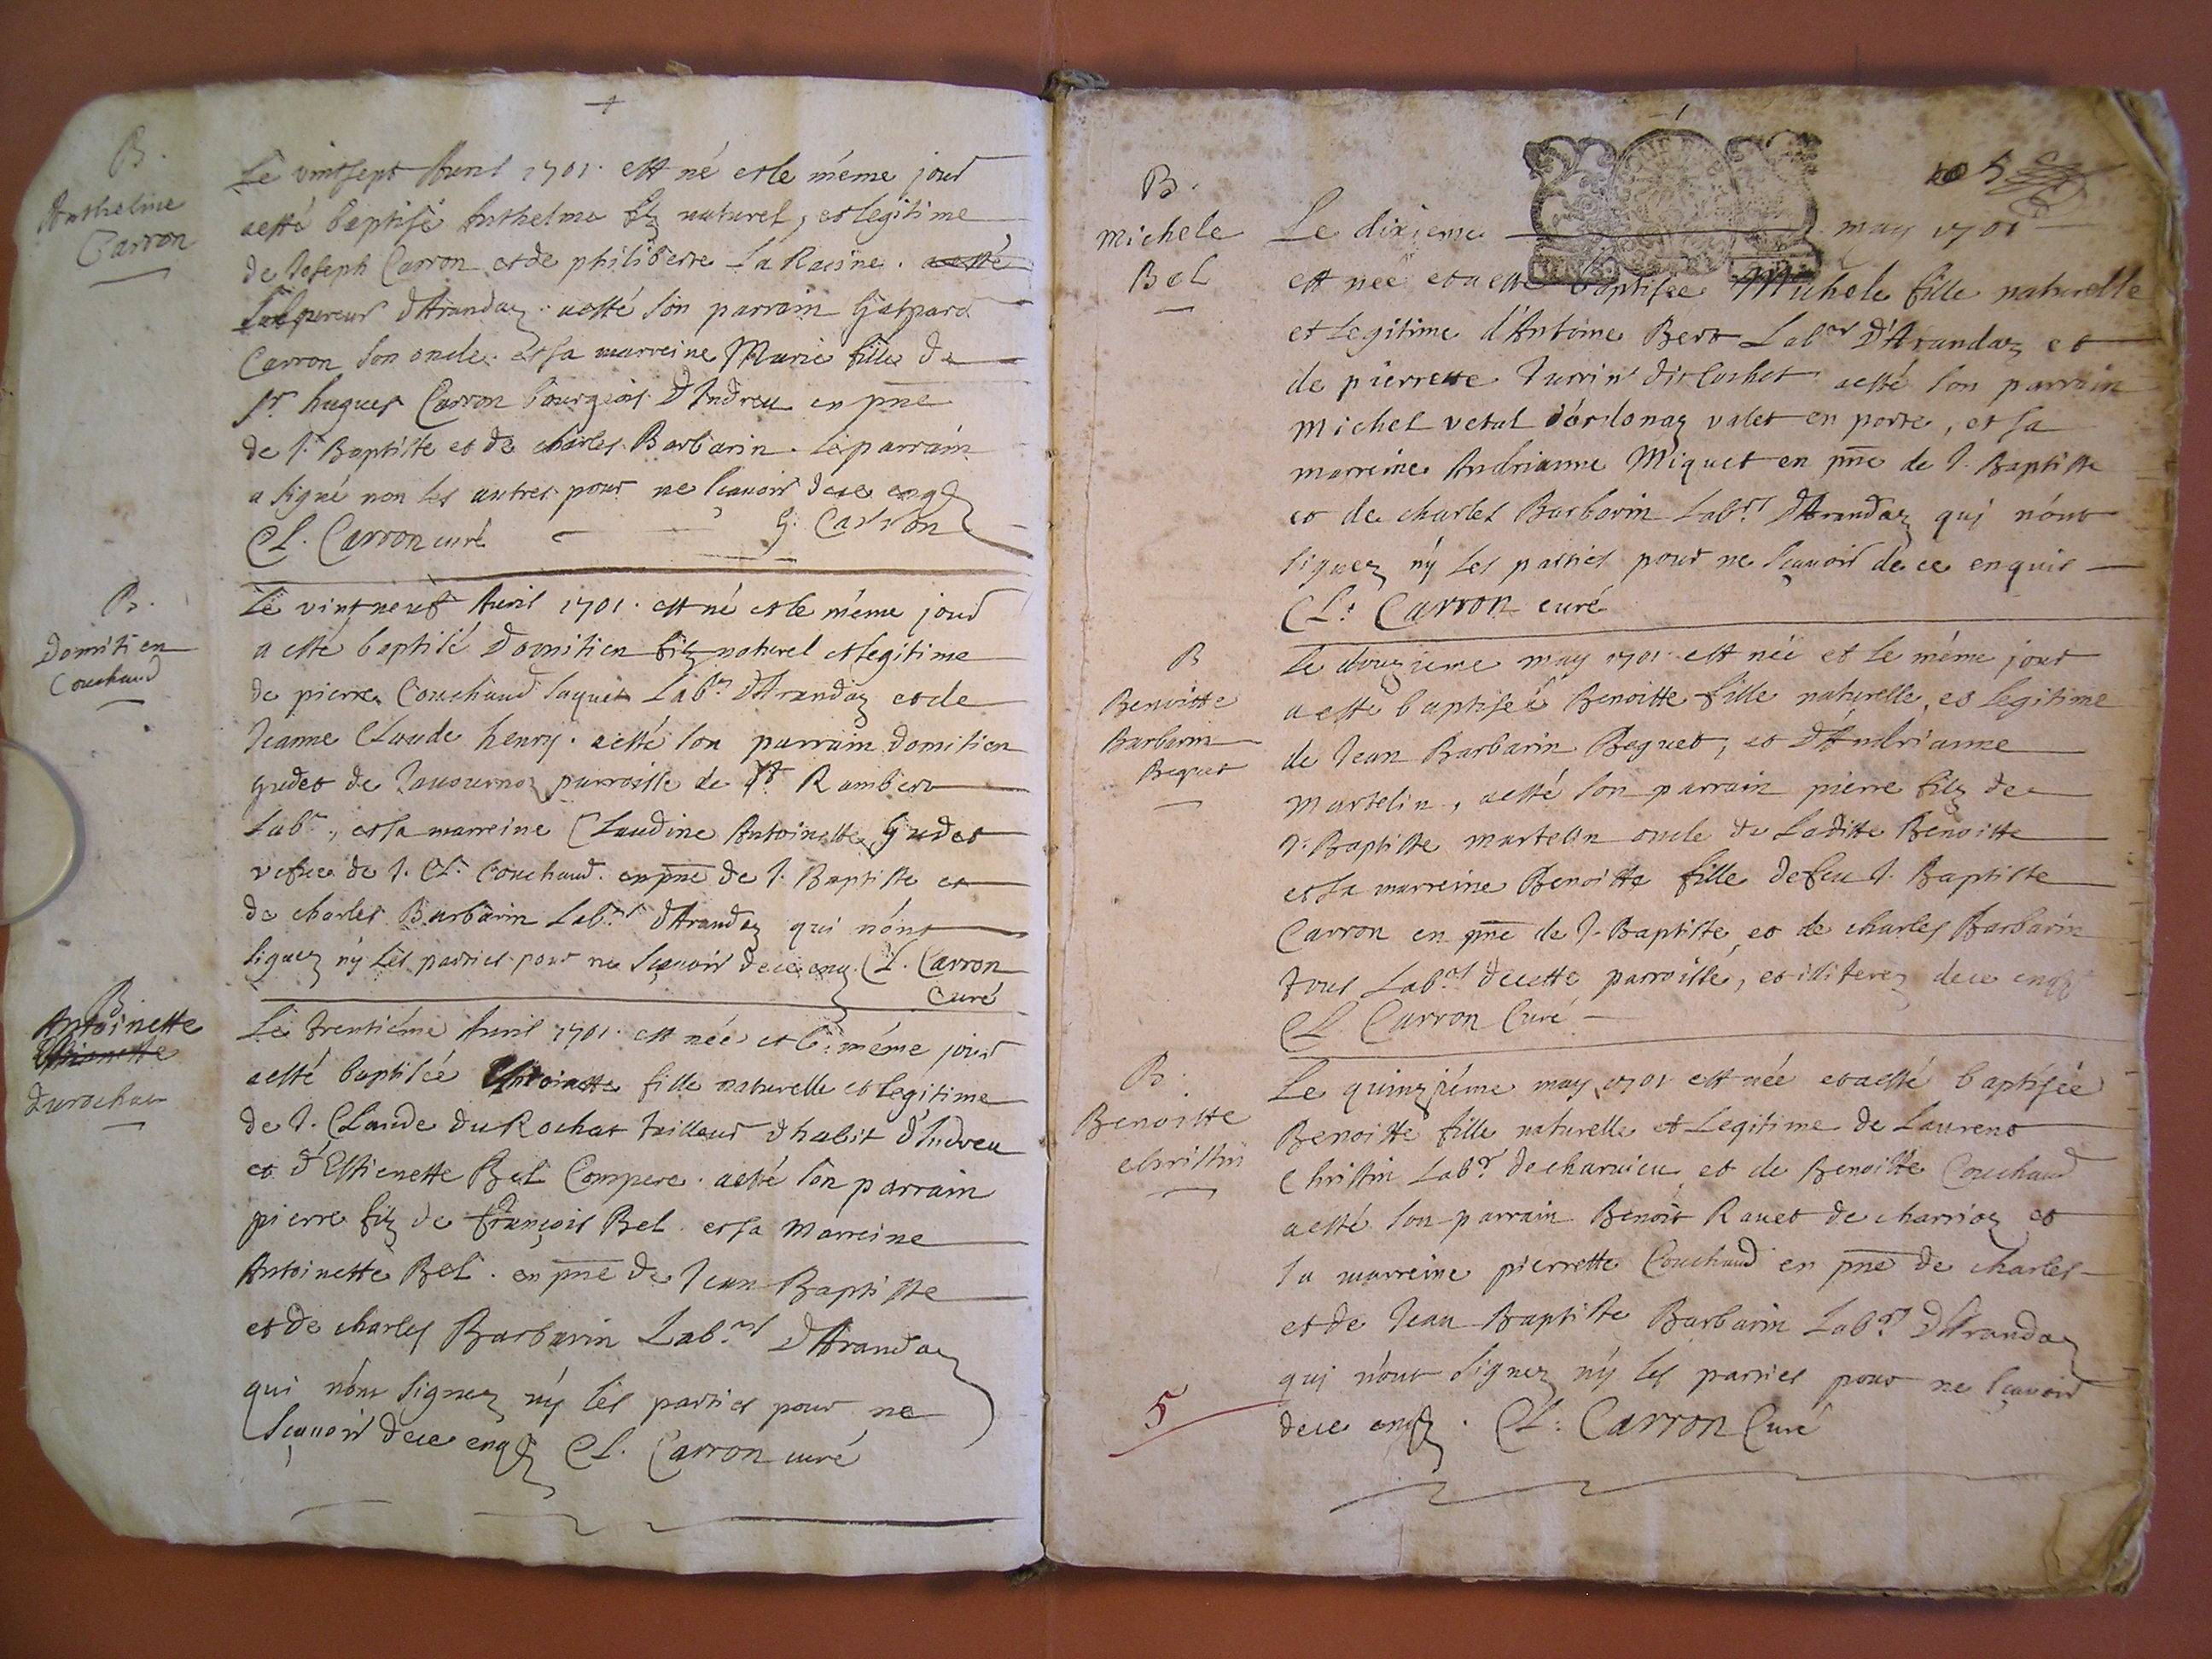 B.
Anthelme
Carron
Le vintsept Avril 1701. est né et le méme jour
aesté baptisé Anthelme filz naturel, et legitime
de Joseph Carron et de philiberte La Racine.
Laboureur d'Arandaz. aesté son parrain Gaspard
Carron son oncle. et sa marreine Marie fille de
Sr. hugues Carron bourgeois d'Indrieu en pñe
de J. Baptiste et de charles Barbarin. Le parrain
a signé non les autres pour ne sçavoir de ce enqs
CL. Carron curé G. Carron
B.
Domitien
Couchaud
Le vintneuf Avril 1701. est né et le méme jour
a esté baptisé Domitien filz naturel et legitime
de pierre Couchaud Jaquet Labr. d'Arandaz et de
Jeanne Claude henry. aesté son parrain Domitien
Gudet de Javournoz parroisse de St. Rambert
Labr., et sa marreine Claudine Antoinette Gudet
vefve de J. Cl. Couchaud. en pñe de J. Baptiste et
de charles Barbarin Labrs. d'Arandaz qui n'ont
signez ny les parties pour ne sçavoir de ce enq. CL. Carron
Curé
B.
Antoinette
Durochat
Le trentiéme Avril 1701. est née et le méme jour
aesté baptisée Antoinette fille naturelle et legitime
de J. Claude du Rochat tailleur d'habit d'Indrieu
et d'Estienette Bel Compere. aesté son parrain
pierre filz de françois Bel. et sa Marreine
Antoinette Bel. en pñe de Jean Baptiste
et de charles Barbarin Labrs. d'Arandaz
qui n'ont signez ny les parties pour ne
sçavoir de ce enqs CL. Carron curé
5
B.
Michele
Bel
Le dixieme may 1701
est née et a esté baptisée Michele fille naturelle
et Legitime d'Antoine Bert Labr. d'Arandaz et
de pierrette Jurrin dit Cochet aesté son parrain
Michel vetal d'ordonaz valet en porte, et sa
marreine Andrianne Miquet en pñe de J. Baptiste
et de charles Barbarin Labrs. d'Arandaz qui n'ont
signez ny les parties pour ne sçavoir de ce enquis
CL. Carron curé
B
Benoitte
Barbarin
Beguet
Le douzieme may 1701. est née et le méme jour
a esté baptiseé Benoitte fille naturelle, et legitime
de Jean Barbarin Beguet, et d'Andrianne
Martelin, aesté son parrain pierre filz de
J. Baptiste martelin oncle de Laditte Benoitte
et sa marreine Benoitte fille de feu J. Baptiste
Carron en pñe de J. Baptiste, et de charles Barbarin
tous Labrs. de cette parroisse, et iliterez de ce enqs
CL Carron Curé
B.
Benoitte
christin
Le quinziéme may 1701 est née et aesté baptisée
Benoitte fille naturelle et Legitime de Laurent
Christin Labr. de charvieu et de Benoitte Couchaud
aesté son parrain Benoit Ravet de charrioz et
sa marreine pierrette Couchaud en pñe de charles
et de Jean Baptiste Barbarin Labrs. d'Arandaz
qui n'ont signez ny les parties pour ne sçavoir
de ce enqs. CL. Carron Curé
5